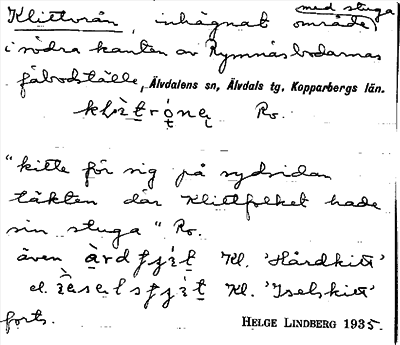 Klittvrån, inhägnat område, med stuga
i södra kanten av Rymnäsbodarnas
fäbodställe, Älvdalens sn, Älvdals tg, Kopparbergs län.
Ro.
"kitte för sig på sydsidan
täkten där Klittfolket hade
sin stuga" Ro.
även Kl. 'Hårdkitt'
el. Kl. 'Iselskitt'
forts. HELGE LINDBERG 1935.